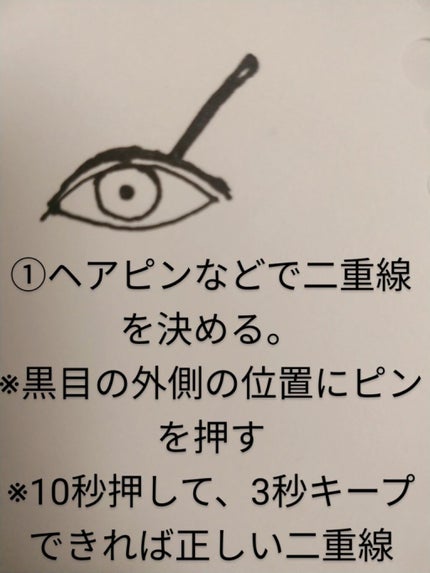 ①ヘアピンなどで二重線
を決める。
※黒目の外側の位置にピン
を押す
※10秒押して、3秒キープ
できれば正しい二重線